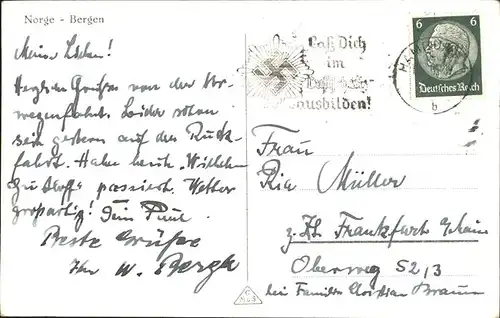 Norge - Bergen
Meine Lieben!
Herzliche Grüße von der Nor-
wegenfahrt. Leider
sein gestern auf der Rück-
fahrt. Haben heute "Wilhelm
Gustloff" passiert. Wetter
großartig! Dein Paul
Beste Grüße
Ihr W. Bergh
Laß Dich
im
ausbilden!
6 6
Deutsches Reich
b
Frau
Ria Müller
z. Zt. Frankfurt
Oberweg 52,3
bei Familie Christian Braun